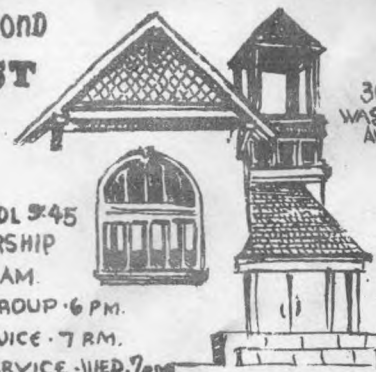 OND
ST
30
WAS
A
OL 9:45
RSHIP
AM.
GROUP · 6 PM.
VICE · 7 P.M.
ERVICE · WED. 7 PM